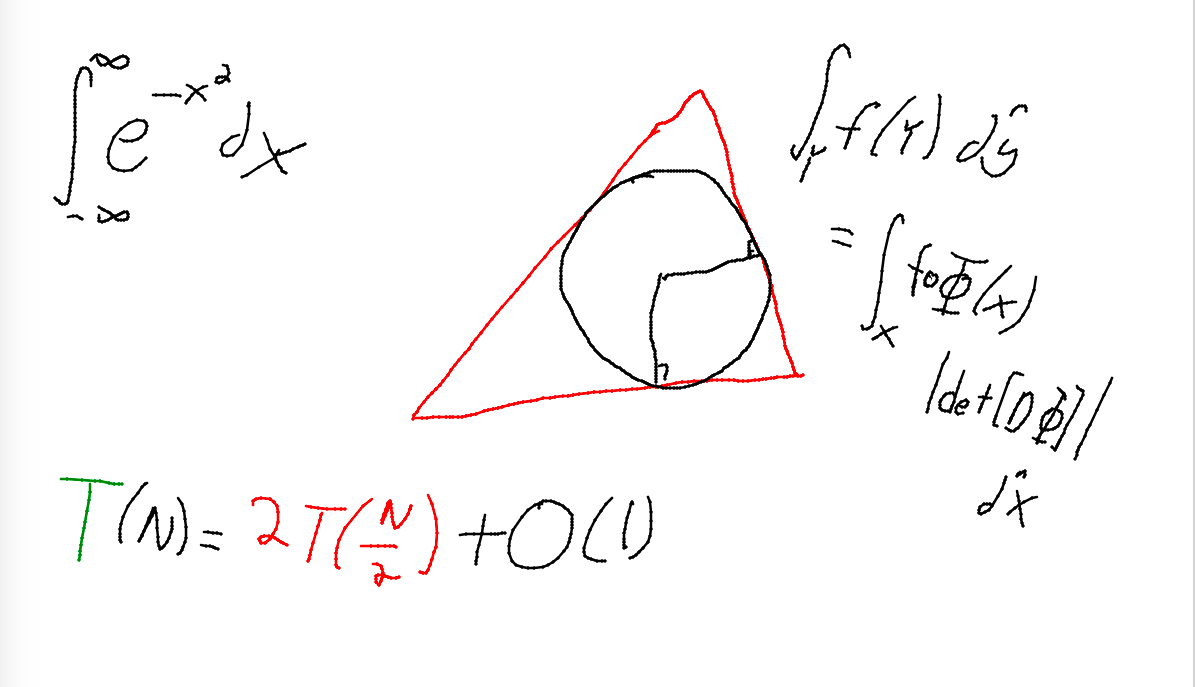 ∫_{-∞}^{∞} e^{-x^2} dx
∫_Y f(Y) dŷ
= ∫_X f∘Φ(x)
|det[DΦ]|
dx̂
T(N) = 2T(N/2) + O(1)